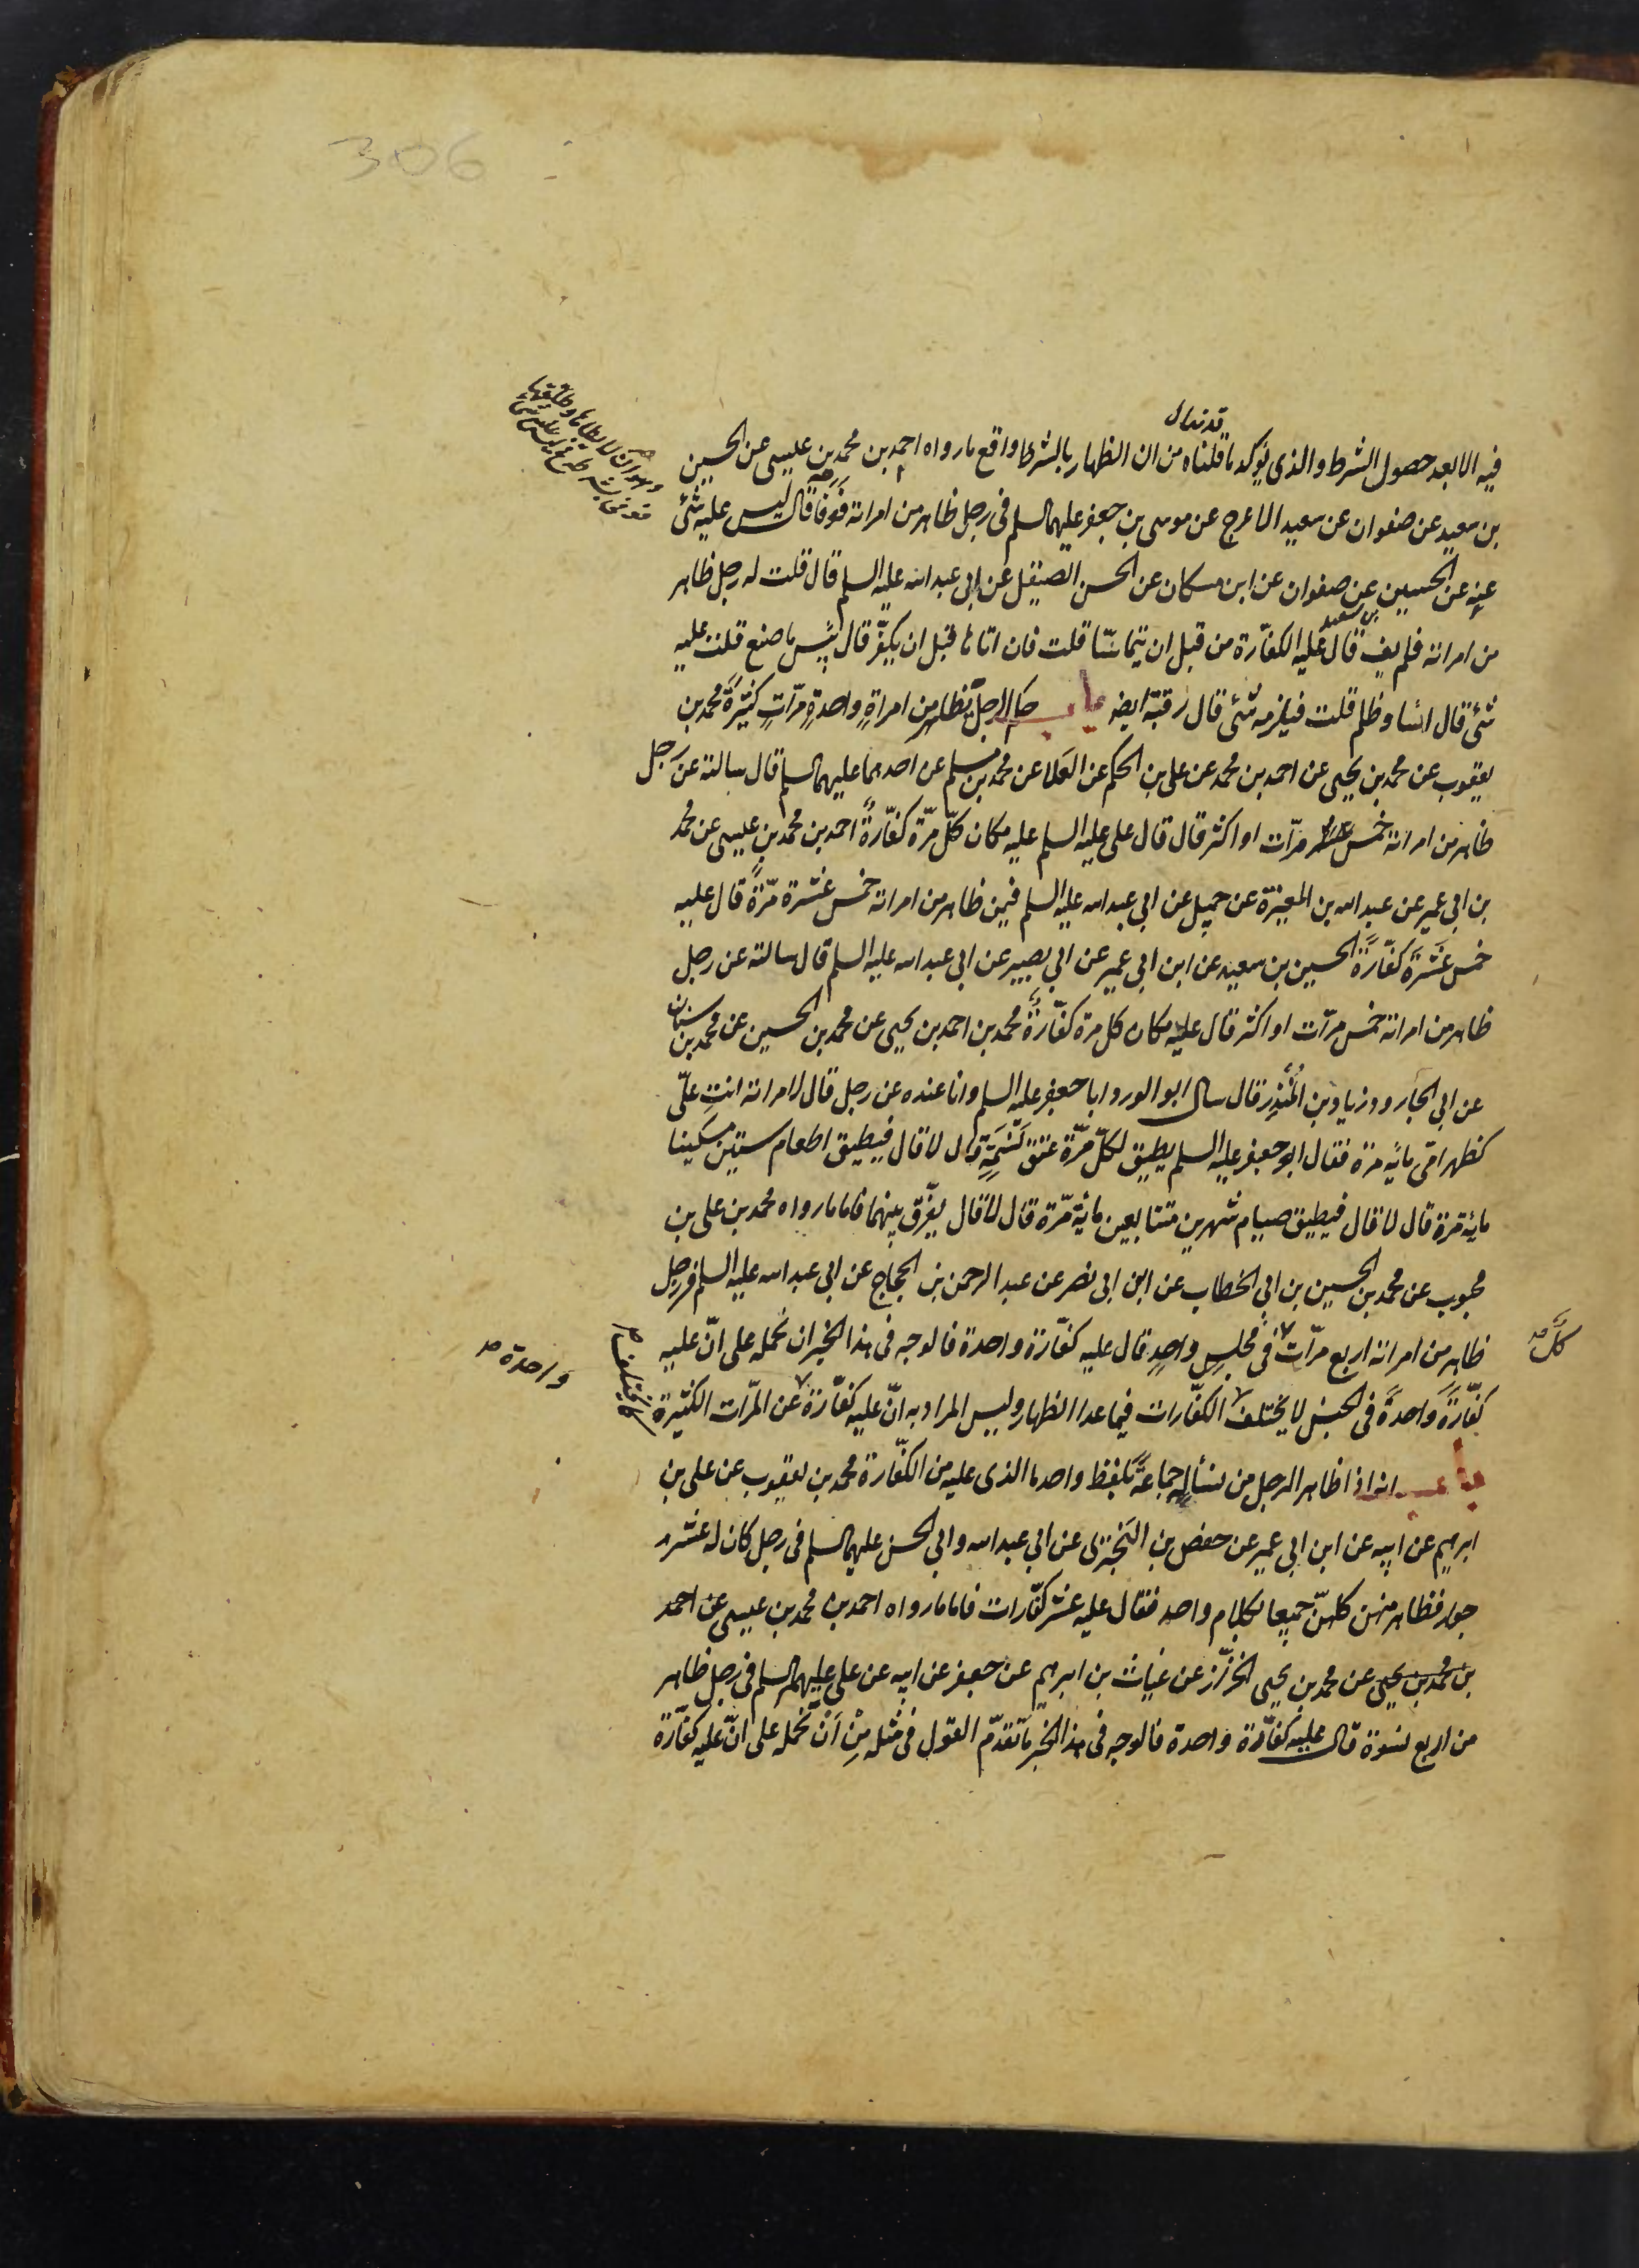 306
فيه الا بعد حصول الشرط والذي يؤكد ما قلناه من ان الظهار بالشرط واقع ما رواه احمد بن محمد بن عليسى عن الحسين
بن سعيد عن صفوان عن سعيد الاعرج عن موسى بن جعفر عليهما السلم فى رجل ظاهر من امراته فوفا قال ليس عليه شئ
عنه عن الحسين بن سعيد عن صفوان عن ابن مسكان عن الحسن الصيقل عن ابى عبد الله عليه السلم قال قلت له رجل ظاهر
من امراته فلم يف قال عليه الكفّارة من قبل ان يتماسّا قلت فان اتاها قبل ان يكفّر قال بئس ما صنع قلت عليه
شئ قال اسا وظلم قلت فيلزمه شئ قال رقبة ايضه باب حكم الرجل يظاهر من امراةٍ واحدةٍ مرّاتٍ كثيرةً محمد بن
يعقوب عن محمد بن يحيى عن احمد بن محمد عن على بن الحكم عن العلا عن محمد بن مسلم عن احدهما عليهما السلم قال سالته عن رجل
ظاهر من امراته خمس مرّات او اكثر قال قال على عليه السلم عليه مكان كلّ مرّة كفّارةٌ احمد بن محمد بن عيسى عن محمد
بن ابى عمير عن عبد الله بن المغيرة عن جميل عن ابى عبد الله عليه السلم فيمن ظاهر من امراته خمس عشرة مرّةً قال عليه
خمس عَشَرَة كفّارَةً الحسين بن سعيد عن ابن ابى عمير عن ابى بصير عن ابى عبد الله عليه السلم قال سالته عن رجل
ظاهر من امراته خمس مرّات او اكثر قال عليه مكان كل مرة كفّارةٌ محمد بن احمد بن يحيى عن محمد بن الحسين عن محمد بن سنان
عن ابى الجارود زياد بن المُنذِر قال سال ابو الورد ابا جعفر عليه السلم وانا عنده عن رجل قال لامراته انتِ علىّ
كظهر امّى مايه مرة فقال ابو جعفر عليه السلم يطيق لكلّ مَرّة عتق نَسَمَةٍ قال لا قال فيطيق اطعام ستين مسكينا
مايه مرة قال لا قال فيطيق صيام شهرين متتابعين مايةَ مرّة قال لا قال يفرّق بينهما فاما ما رواه محمد بن على بن
محبوب عن محمد بن الحسين بن ابى الخطاب عن ابن ابى نصر عن عبد الرحمن بن الحجاج عن ابى عبد الله عليه السلم فى رجل
ظاهر من امراته اربع مرّات فى مجلسٍ واحدٍ قال عليه كفّارة واحدة فالوجه فى هذا الخبر ان نحمله على انّ عليه
كلّ
كفّارَةً واحدةً فى الجنس لا يختلف الكفّارات فيما عدا الظهار وليس المراد به انّ عليه كفّارة عن المرّات الكثيرة
واحدة
باب انه اذا ظاهر الرجل من نسائه جماعةً بلفظ واحد ما الذى عليه من الكفّارة محمد بن يعقوب عن على بن
ابرهيم عن ابيه عن ابن ابى عمير عن حفص بن البَختِرى عن ابى عبد الله وابى الحسن عليهما السلم فى رجل كان له عشر
جوار فظاهر منهن كلهنّ جميعا بكلام واحد فقال عليه عشر كفّارات فاما ما رواه احمد بن محمد بن عيسى عن احمد
بن محمد بن يحيى عن محمد بن يحيى الخزّز عن غياث بن ابرهيم عن جعفر عن ابيه عن على عليهم السلم فى رجل ظاهر
من اربع نسوة قال عليه كفّارة واحدة فالوجه فى هذا الخبر ما تقدّم القول فى مثله مِن اَن نحمله على انّ عليه كفّارة